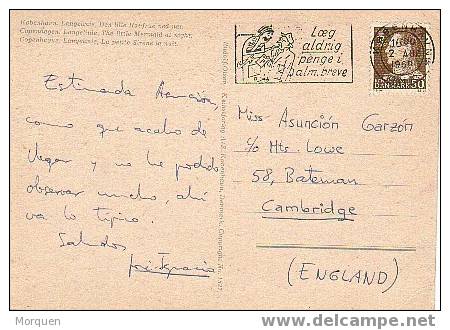 København. Langelinie. Den lille Havfrue ved nat.
Copenhagen. Langelinie. The little Mermaid at night.
Copenhague. Langelinie. La petite Sirène la nuit.
Læg
aldrig
penge i
alm. breve
1960
DANMARK 50
Estimada Asunción,
como que acabo de
llegar y no he podido
observar mucho, ahí
va lo típico.
Saludos
José-Ignacio
Miss Asunción Garzón
c/o Mts. Lowe
58, Bateman
Cambridge
(ENGLAND)
Morquen
delcampe.net